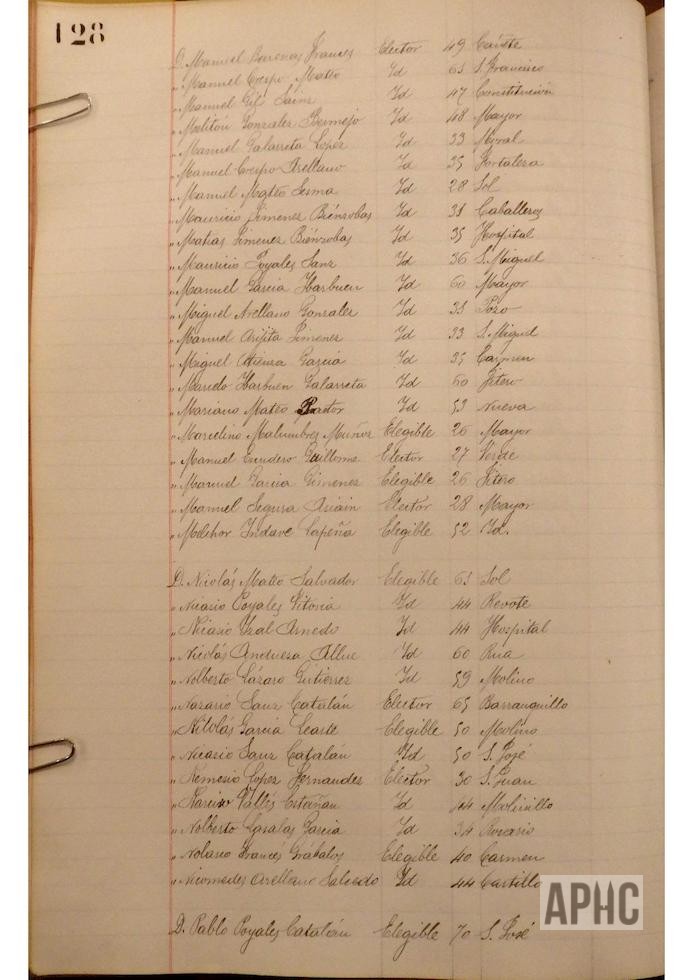 128
D. Manuel Barenas Francés Elector 49 Cañete
" Manuel Crespo Mateo Id 63 S. Francisco
" Manuel Gil Sainz Id 47 Constitución
" Melitón Gonzalez Bermejo Id 48 Mayor
" Manuel Galarreta Lopez Id 33 Moral
" Manuel Crespo Arellano Id 35 Fortaleza
" Manuel Mateo Lerma Id 28 Sol
" Mauricio Jimenez Biénzobas Id 38 Caballeros
" Matias Jimenez Biénzobas Id 35 Hospital
" Mauricio Poyales Sanz Id 36 S. Miguel
" Manuel Garcia Ybarbuen Id 60 Mayor
" Miguel Arellano Gonzalez Id 38 Pozo
" Manuel Jimenez Id 33 S. Miguel
" Miguel Atienza Garcia Id 35 Carmen
" Ybarbuen Galarreta Id 60 Fitero
" Mariano Mateo Pastor Id 53 Nueva
" Marcelino Malumbres Muñoz Elegible 26 Mayor
" Manuel Escudero Guillorme Elector 27 Verde
" Manuel Garcia Gimenez Elegible 26 Fitero
" Manuel Segura Elector 28 Mayor
" Melchor Yndave Lapeña Elegible 52 Id.
D. Nicolás Mateo Salvador Elegible 63 Sol
" Nicasio Poyales Vitoria Id 44 Revote
" Nicasio Yzal Arnedo Id 44 Hospital
" Nicolás Andueza Allue Id 60 Rúa
" Nolberto Lázaro Gutierrez Id 59 Molino
" Nazario Sanz Catalán Elector 65 Barranquillo
" Nicolás Garcia Elegible 50 Molino
" Nicasio Sanz Catalán Id 50 S. José
" Nemesio Lopez Fernandez Elector 30 S. Juan
" Narciso Vallés Id 44 Molinillo
" Nolberto Garcia Id 34 Rosario
" Nolasco Francés Grábalos Elegible 40 Carmen
" Nicomedes Arellano Salcedo Id 44 Castillo
D. Pablo Poyales Catalán Elegible 70 S. José
APHC